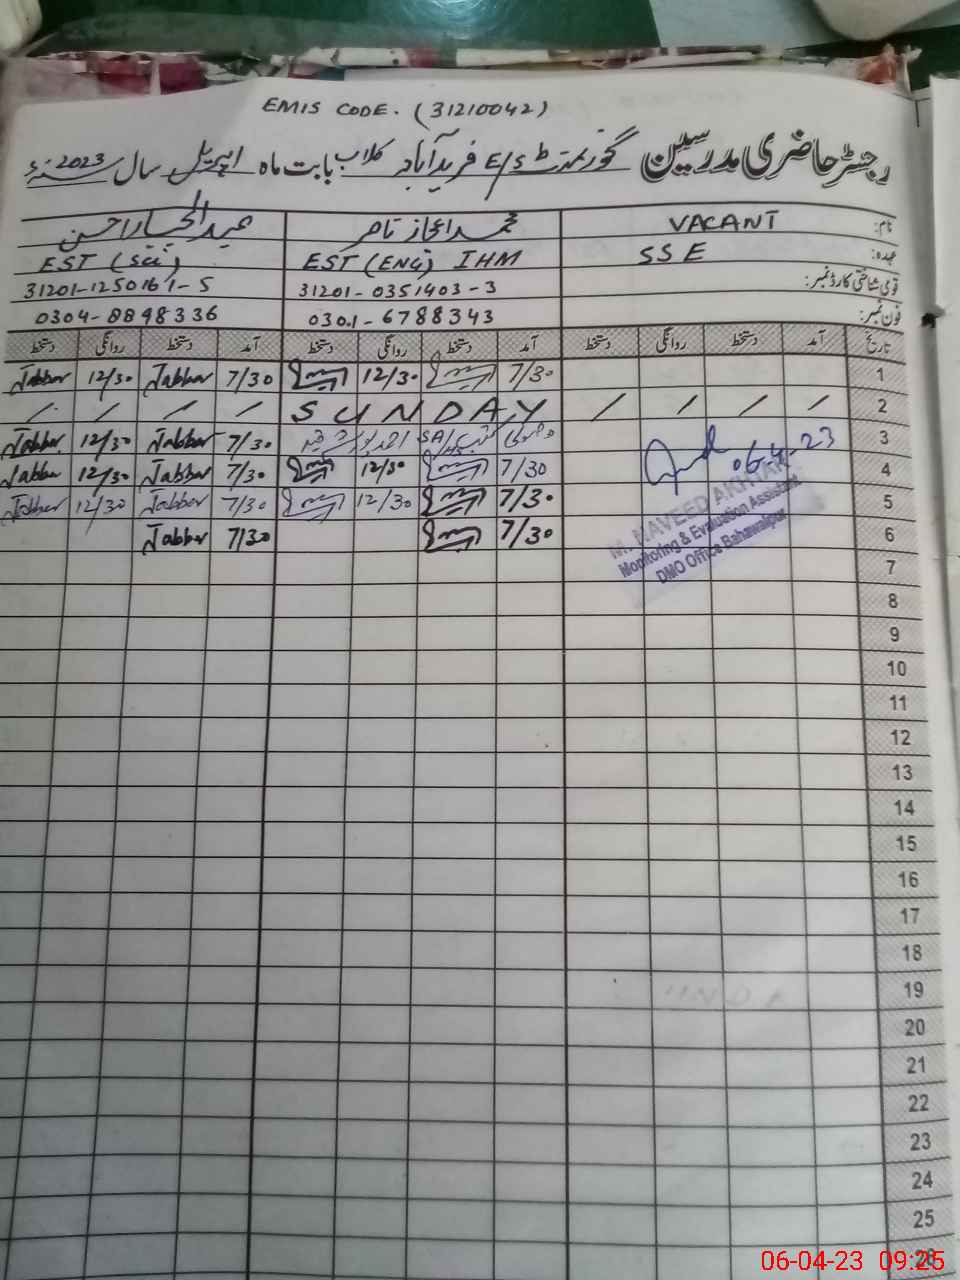 EMIS CODE. (31210042)
رجسٹر حاضری مدرسین گورنمنٹ E/S فرید آباد کلاب بابت ماہ اپریل سال 2023ء
نام: VACANT محمد اعجاز ناصر عبدالجبار احسن
عہدہ: SSE EST (ENG) IHM EST (Sci)
قومی شناختی کارڈ نمبر: 31201-0351403-3 31201-1250161-5
فون نمبر: 0301-6788343 0304-8898336
تاریخ آمد دستخط روانگی دستخط آمد دستخط روانگی دستخط آمد دستخط روانگی دستخط
1 7/30 12/30 7/30 Jabbar 12/30 Jabbar
2 / / / / SUNDAY / / / /
3 SA/ 7/30 Jabbar 12/30 Jabbar
4 06-4-23 7/30 12/30 7/30 Jabbar 12/30 Jabbar
5 7/30 12/30 7/30 Jabbar 12/30 Jabbar
6 7/30 7/30 Jabbar
M. NAVEED AKHTAR
Monitoring & Evaluation Assistant
DMO Office Bahawalpur
7
8
9
10
11
12
13
14
15
16
17
18
19
20
21
22
23
24
25
26
06-04-23 09:25